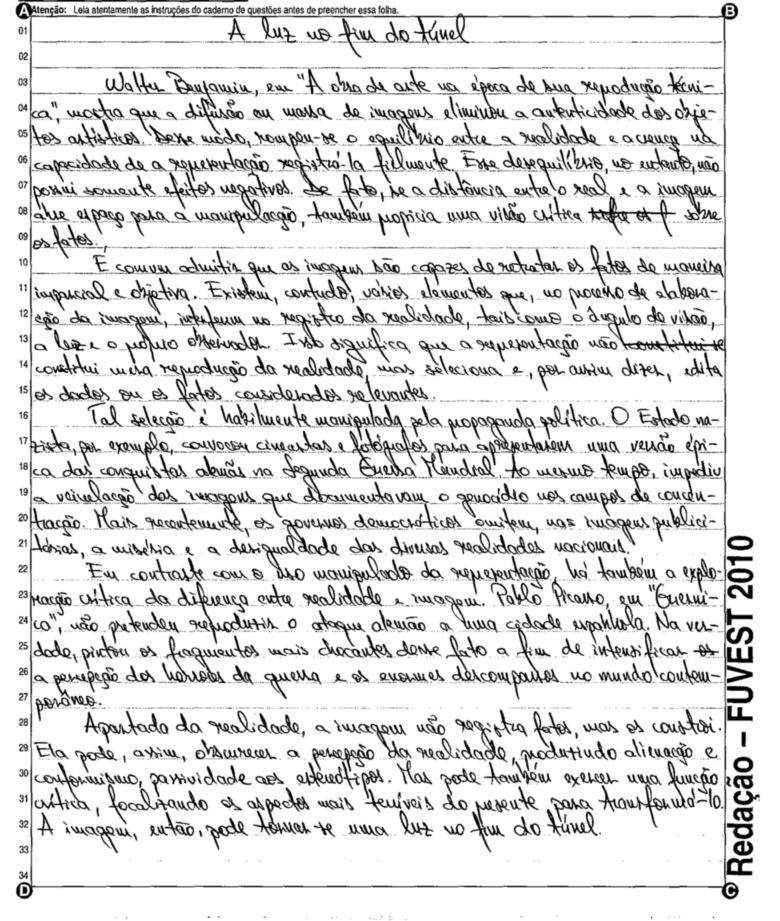 Atenção: Leia atentamente as instruções do caderno de questões antes de preencher essa folha.
A B C D
Redação – FUVEST 2010
01 A luz no fim do túnel
02
03 Walter Benjamin, em "A obra de arte na época de sua reprodução técni-
04 ca", mostra que a difusão em massa de imagens eliminou a autenticidade dos obje-
05 tos artísticos. Desse modo, rompeu-se o equilíbrio entre a realidade e a crença na
06 capacidade de a representação registrá-la fielmente. Esse desequilíbrio, no entanto, não
07 possui somente efeitos negativos. De fato, se a distância entre o real e a imagem
08 abre espaço para a manipulação, também propicia uma visão crítica sobre
09 os fatos.
10 É comum admitir que as imagens são capazes de retratar os fatos de maneira
11 imparcial e objetiva. Existem, contudo, vários elementos que, no processo de elabora-
12 ção da imagem, interferem no registro da realidade, tais como o ângulo de visão,
13 a luz e o próprio observador. Isso significa que a representação não constitui-se
14 constitui mera reprodução da realidade, mas seleciona e, por assim dizer, edita
15 os dados ou os fatos considerados relevantes.
16 Tal seleção é habilmente manipulada pela propaganda política. O Estado na-
17 zista, por exemplo, convocou cineastas e fotógrafos para apresentarem uma versão épi-
18 ca das conquistas alemãs na Segunda Guerra Mundial. Ao mesmo tempo, impediu
19 a veiculação das imagens que documentavam o genocídio nos campos de concen-
20 tração. Mais recentemente, os governos democráticos omitem, nas imagens publici-
21 tárias, a miséria e a desigualdade das diversas realidades nacionais.
22 Em contraste com o uso manipulado da representação, há também a explo-
23 ração crítica da diferença entre realidade e imagem. Pablo Picasso, em "Guerni-
24 ca", não pretendeu reproduzir o ataque alemão a uma cidade espanhola. Na ver-
25 dade, pintou os fragmentos mais chocantes desse fato a fim de intensificar os
26 a percepção dos horrores da guerra e os enormes descompassos no mundo contem-
27 porâneo.
28 Apartada da realidade, a imagem não registra fatos, mas os constrói.
29 Ela pode, assim, obscurecer a percepção da realidade, produzindo alienação e
30 conformismo, passividade aos estereótipos. Mas pode também exercer uma função
31 crítica, focalizando os aspectos mais terríveis do presente para transformá-lo.
32 A imagem, então, pode tornar-se uma luz no fim do túnel.
33
34